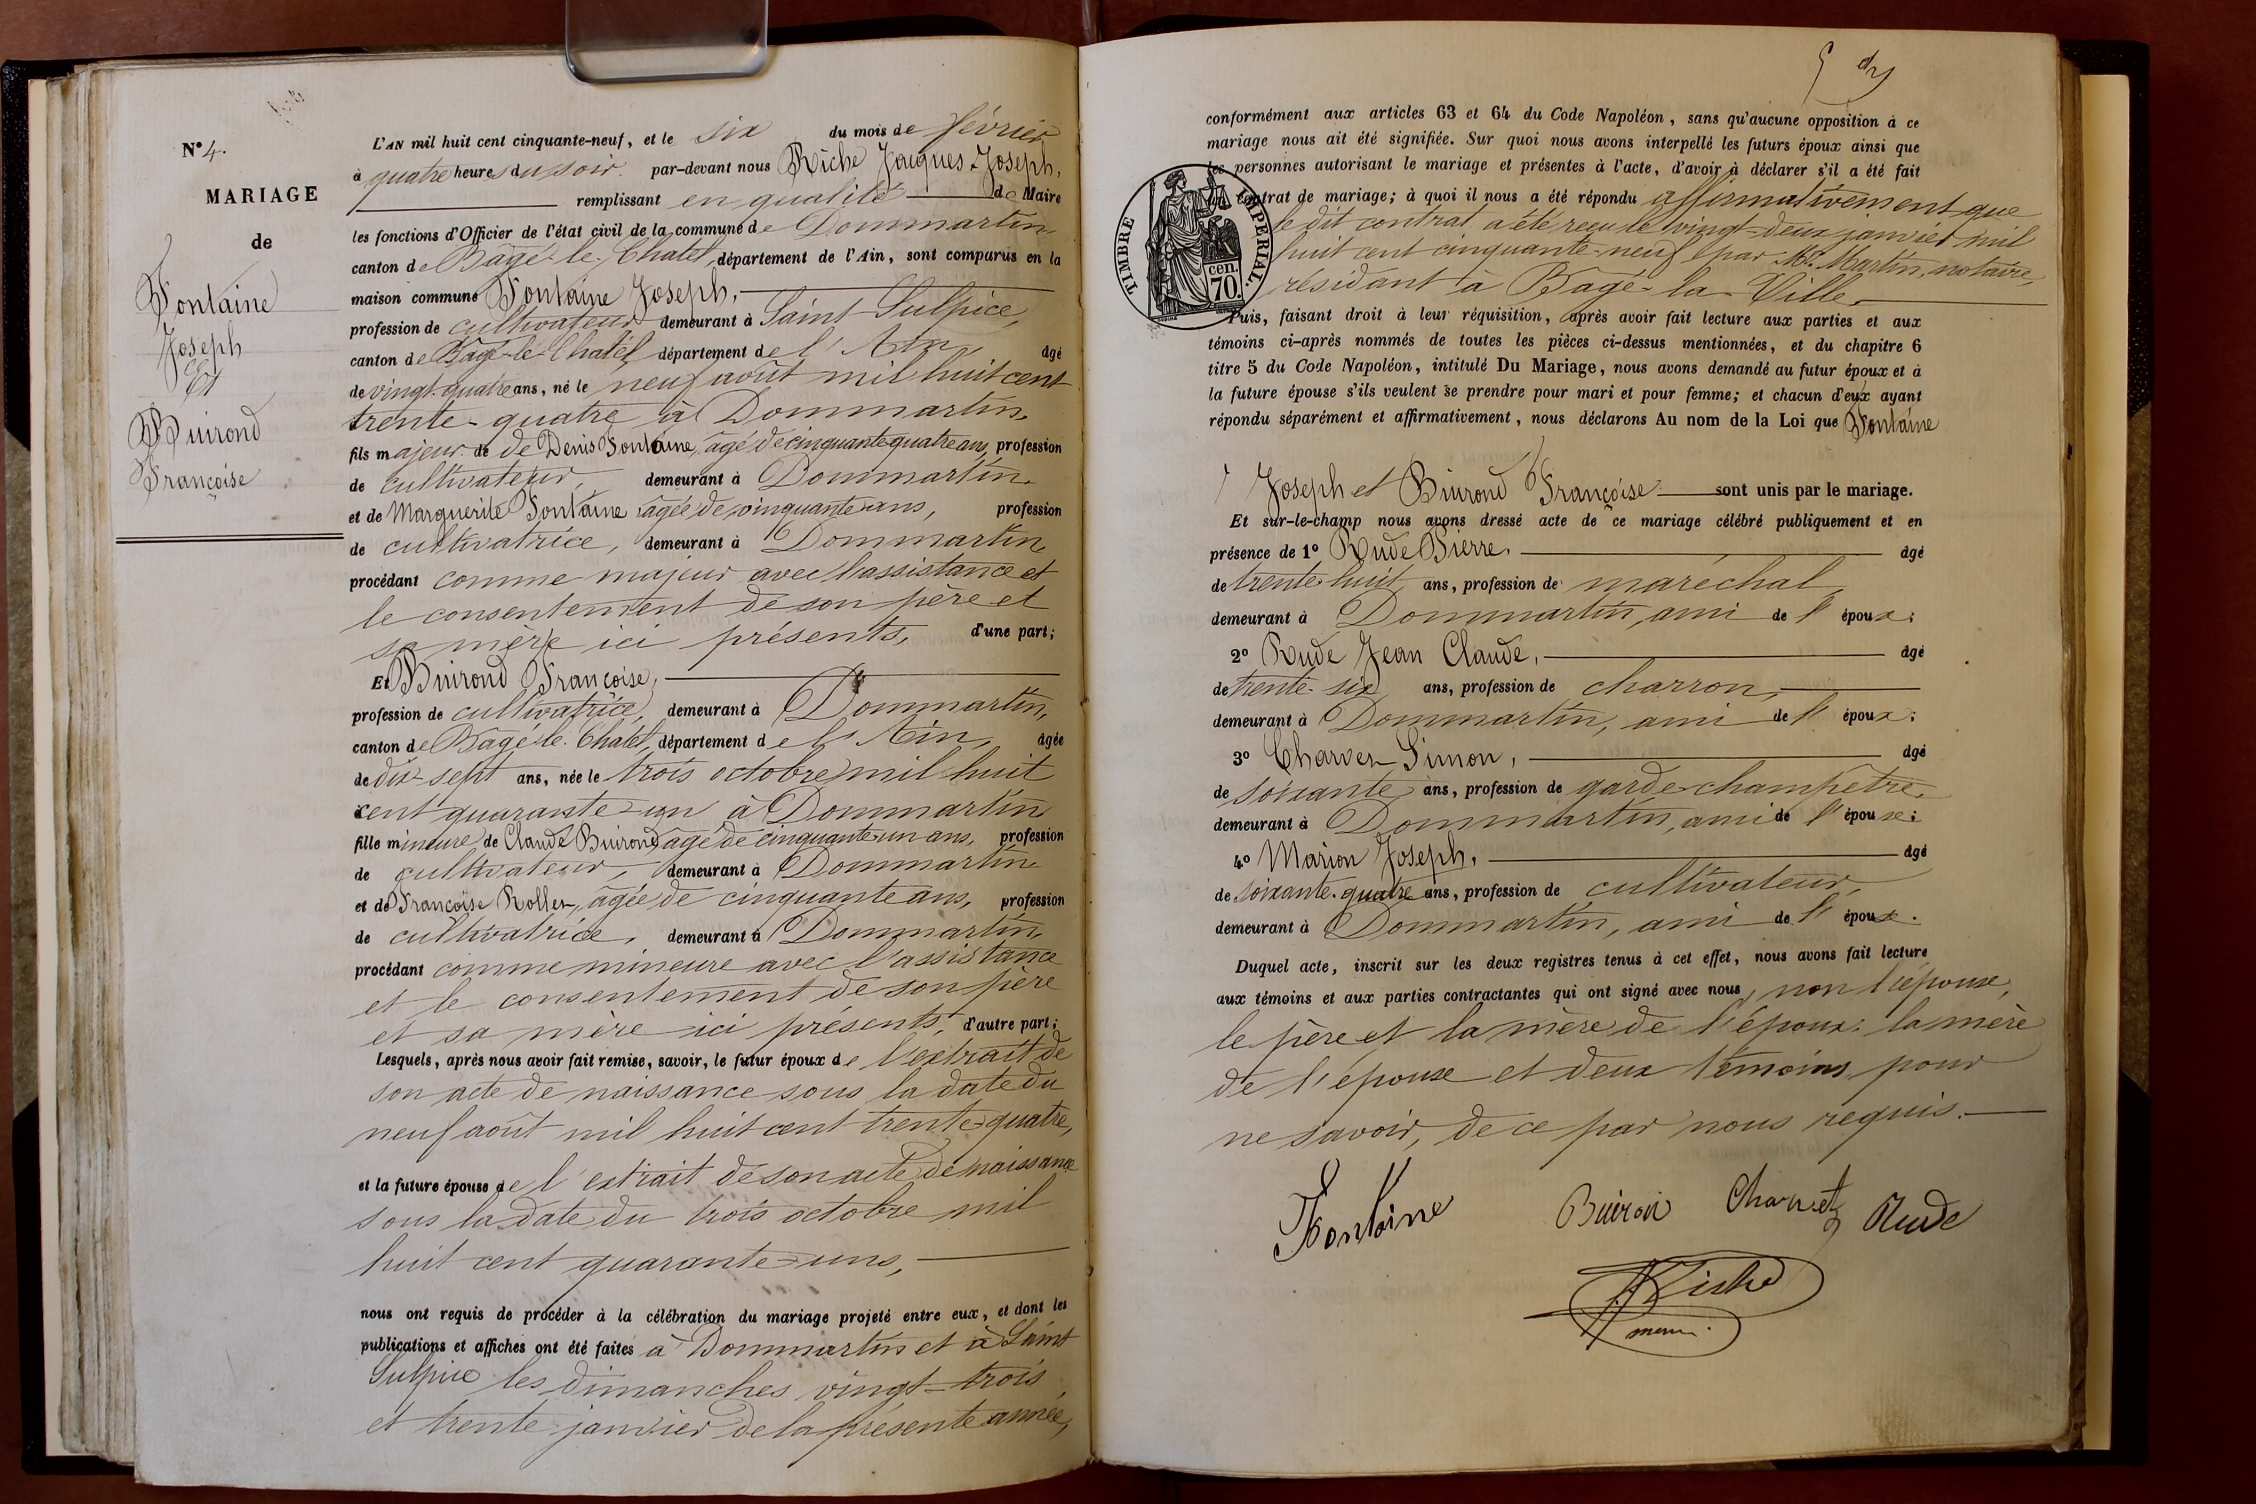 N° 4.
MARIAGE
de
Fontaine
Joseph
Et
Buirond
Françoise
L'AN mil huit cent cinquante-neuf, et le six du mois de février
à quatre heures du soir par-devant nous Riche Jacques-Joseph,
remplissant en qualité de Maire
les fonctions d'Officier de l'état civil de la commune de Dommartin
canton de Bagé-le-Chatel, département de l'Ain, sont comparus en la
maison commune Fontaine Joseph,
profession de cultivateur demeurant à Saint-Sulpice,
canton de Bagé-le-Chatel, département de l'Ain, âgé
de vingt-quatre ans, né le neuf août mil huit cent
trente-quatre à Dommartin,
fils majeur de de Denis Fontaine, âgé de cinquante quatre ans, profession
de cultivateur, demeurant à Dommartin,
et de Marguerite Fontaine âgée de cinquante ans, profession
de cultivatrice, demeurant à Dommartin,
procédant comme majeur avec l'assistance et
le consentement de son père et
sa mère ici présents, d'une part;
Et Buirond Françoise,
profession de cultivatrice, demeurant à Dommartin,
canton de Bagé-le-Chatel, département de l'Ain, âgée
de dix-sept ans, née le trois octobre mil huit
cent quarante-un à Dommartin
fille mineure de Claude Buirond âgé de cinquante-un ans, profession
de cultivateur, demeurant à Dommartin
et de Françoise Rollet, âgée de cinquante ans, profession
de cultivatrice, demeurant à Dommartin,
procédant comme mineure avec l'assistance
et le consentement de son père
et sa mère ici présents, d'autre part;
Lesquels, après nous avoir fait remise, savoir, le futur époux de l'extrait de
son acte de naissance sous la date du
neuf août mil huit cent trente-quatre,
et la future épouse de l'extrait de son acte de naissance
sous la date du trois octobre mil
huit cent quarante-un,
nous ont requis de procéder à la célébration du mariage projeté entre eux, et dont les
publications et affiches ont été faites à Dommartin et à Saint
Sulpice les dimanches vingt-trois
et trente janvier de la présente année,
conformément aux articles 63 et 64 du Code Napoléon, sans qu'aucune opposition à ce
mariage nous ait été signifiée. Sur quoi nous avons interpellé les futurs époux ainsi que
les personnes autorisant le mariage et présentes à l'acte, d'avoir à déclarer s'il a été fait
contrat de mariage; à quoi il nous a été répondu affirmativement que
le dit contrat a été reçu le vingt-deux janvier mil
huit cent cinquante-neuf par Me Martin, notaire,
résidant à Bagé-la-Ville.
TIMBRE IMPERIAL.
cen.
70.
Puis, faisant droit à leur réquisition, après avoir fait lecture aux parties et aux
témoins ci-après nommés de toutes les pièces ci-dessus mentionnées, et du chapitre 6
titre 5 du Code Napoléon, intitulé Du Mariage, nous avons demandé au futur époux et à
la future épouse s'ils veulent se prendre pour mari et pour femme; et chacun d'eux ayant
répondu séparément et affirmativement, nous déclarons Au nom de la Loi que Fontaine
Joseph et Buirond Françoise sont unis par le mariage.
Et sur-le-champ nous avons dressé acte de ce mariage célébré publiquement et en
présence de 1° Rude Pierre, âgé
de trente-huit ans, profession de maréchal,
demeurant à Dommartin, ami de l'époux;
2° Rude Jean Claude, âgé
de trente-six ans, profession de charron,
demeurant à Dommartin, ami de l'époux;
3° Charvet Simon, âgé
de soixante ans, profession de garde-champêtre,
demeurant à Dommartin, ami de l'épouse;
4° Marion Joseph, âgé
de soixante-quatre ans, profession de cultivateur,
demeurant à Dommartin, ami de l'épouse.
Duquel acte, inscrit sur les deux registres tenus à cet effet, nous avons fait lecture
aux témoins et aux parties contractantes qui ont signé avec nous, non l'épouse,
le père et la mère de l'époux: la mère
de l'épouse et deux témoins pour
ne savoir, de ce par nous requis.
Fontaine Buiron Charvet Rude
Riche